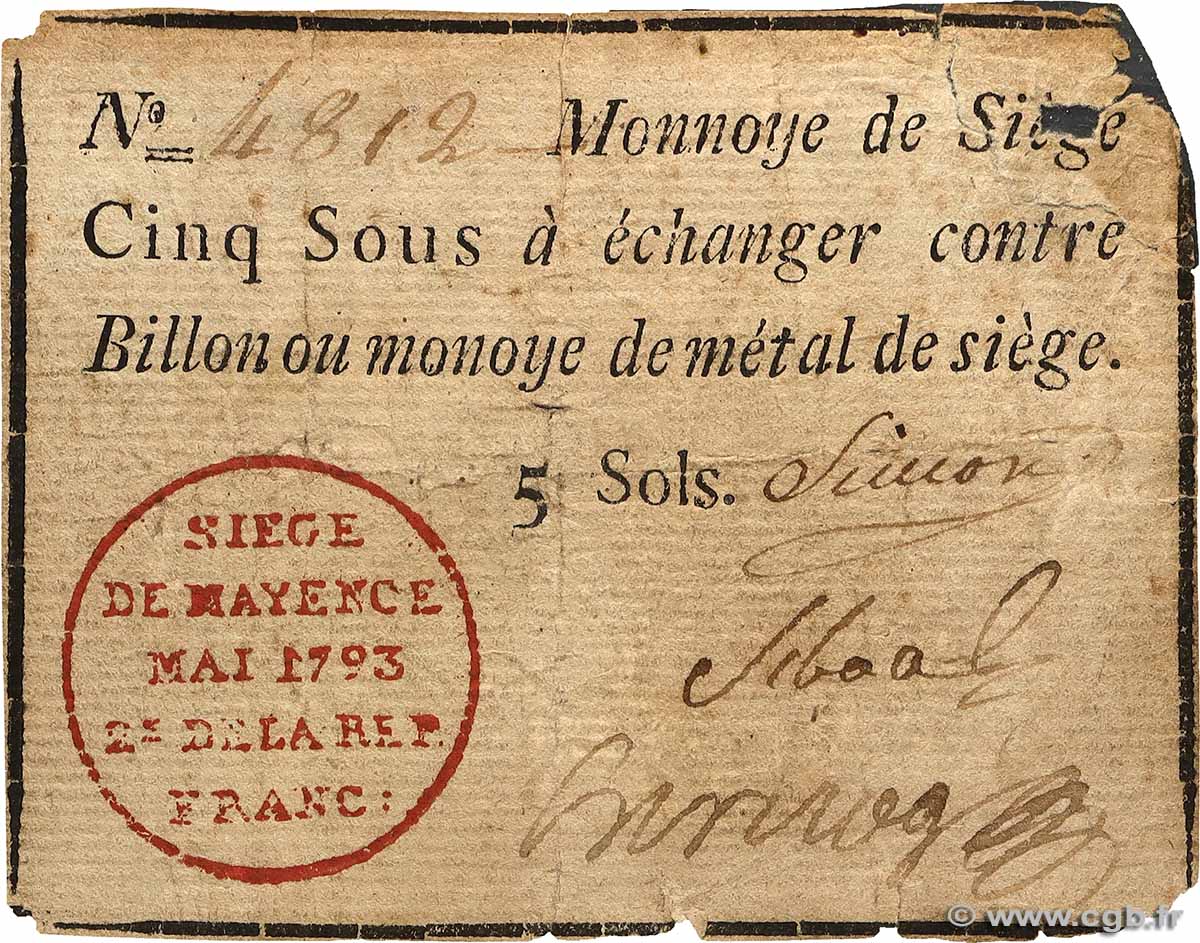 No 4812 Monnoye de Siège
Cinq Sous à échanger contre
Billon ou monoye de métal de siège.
5 Sols. Simon
SIEGE
DE MAYENCE
MAI 1793
2E DE LA REP.
FRANC:
© www.cgb.fr